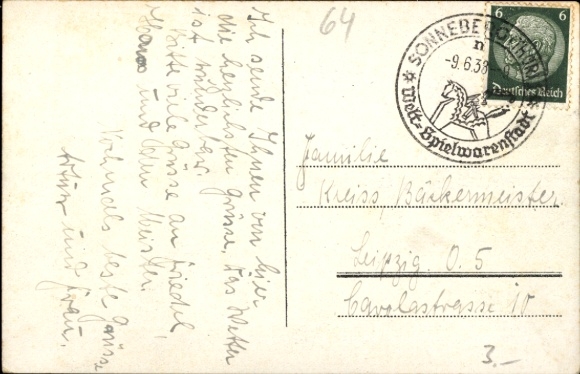 64
Ich sende Ihnen von hier
die herzlichsten Grüsse. Das Wetter
ist wunderbar.
Bitte viele Grüsse an Friedel,
Hans und den Meister.
Nochmals beste Grüsse
Artur und Frau.
SONNEBERG (THÜR)
n
-9.6.38
Welt-Spielwarenstadt
6 6
Deutsches Reich
Familie
Kreiss, Bäckermeister
Leipzig O. 5
Carolastrasse 10
3.-